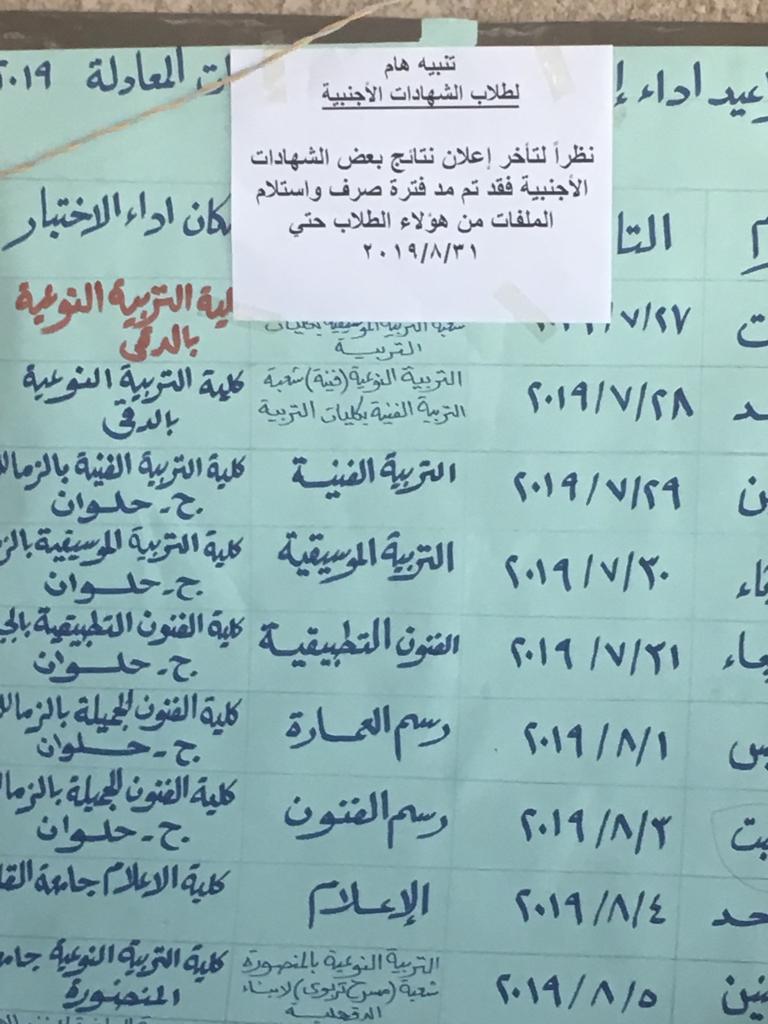 ـعيد اداء إ
ـات المعادلة ٢٠١٩
تنبيه هام
لطلاب الشهادات الأجنبية
نظراً لتأخر إعلان نتائج بعض الشهادات
الأجنبية فقد تم مد فترة صرف واستلام
الملفات من هؤلاء الطلاب حتي
٢٠١٩/٨/٣١
التا
ـكان اداء الاختبار
ـت
٧/٢٧
شعبة التربية الموسيقية بكليات
التربية
ـلية التربية النوعية
بالدقى
ـد
٢٠١٩/٧/٢٨
التربية النوعية (فنية) شعبة
التربية الفنية بكليات التربية
كلية التربية النوعية
بالدقى
ـن
٢٠١٩/٧/٢٩
التربية الفنية
كلية التربية الفنية بالزمالـ
ج - حلوان
ـاء
٢٠١٩/٧/٣٠
التربية الموسيقية
كلية التربية الموسيقية بالز
ج - حلوان
ـعاء
٢٠١٩/٧/٣١
الفنون التطبيقية
كلية الفنون التطبيقية بالجـ
ج - حلوان
ـس
٢٠١٩/٨/١
رسم العمارة
كلية الفنون الجميلة بالزمالـ
ج - حلوان
ـبت
٢٠١٩/٨/٣
رسم الفنون
كلية الفنون الجميلة بالزما
ج - حلوان
ـحد
٢٠١٩/٨/٤
الإعلام
كلية الاعلام جامعة القا
ـنين
٢٠١٩/٨/٥
التربية النوعية بالمنصورة
شعبة (مسرح تربوى) لابناء
الدقهلية
كلية التربية النوعية جامـ
المنصورة